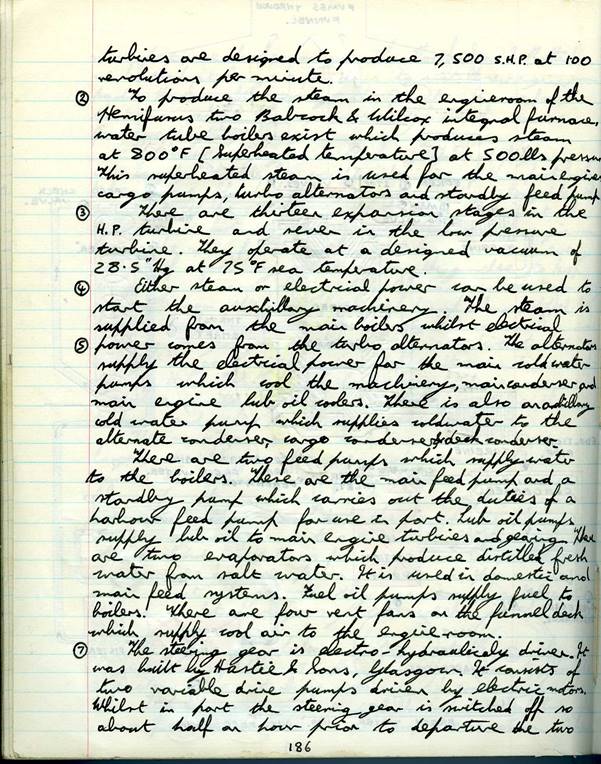 turbines are designed to produce 7,500 S.H.P. at 100
revolutions per minute.
② To produce the steam in the engineroom of the
Hemifusus two Babcock & Wilcox integral furnace,
water tube boilers exist which produces steam
at 800°F [Superheated temperature] at 500lbs pressure
This superheated steam is used for the main engine
cargo pumps, turbo alternators and standby feed pump
③ There are thirteen expansion stages in the
H.P. turbine and seven in the low pressure
turbine. They operate at a designed vacuum of
28.5"Hg at 75°F sea temperature.
④ Either steam or electrical power can be used to
start the auxhillary machinery. The steam is
supplied from the main boilers whilst electrical
⑤ power comes from the turbo alternators. The alternators
supply the electrical power for the main cold water
pumps which cool the machinery, main condenser and
main engine lub oil coolers. There is also an
cold water pump which supplies coldwater to the
alternate condenser, cargo condenser, deck condenser.
There are two feed pumps which supply water
to the boilers. These are the main feed pump and a
standby pump which carries out the duties of a
harbour feed pump for use in port. Lub oil pumps
supply lub oil to main engine turbines and gearing. There
are two evaporators which produce distilled fresh
water from salt water. It is used in domestic and
main feed systems. Fuel oil pumps supply fuel to
boilers. There are four vent fans on the funnel deck
which supply cool air to the engineroom.
⑦ The steering gear is electro-hydraulicly driven. It
was built by Hastie & Sons, Glasgow. It consists of
two variable drive pumps driven by electric motors.
Whilst in port the steering gear is switched off so
about half an hour prior to departure the two
186